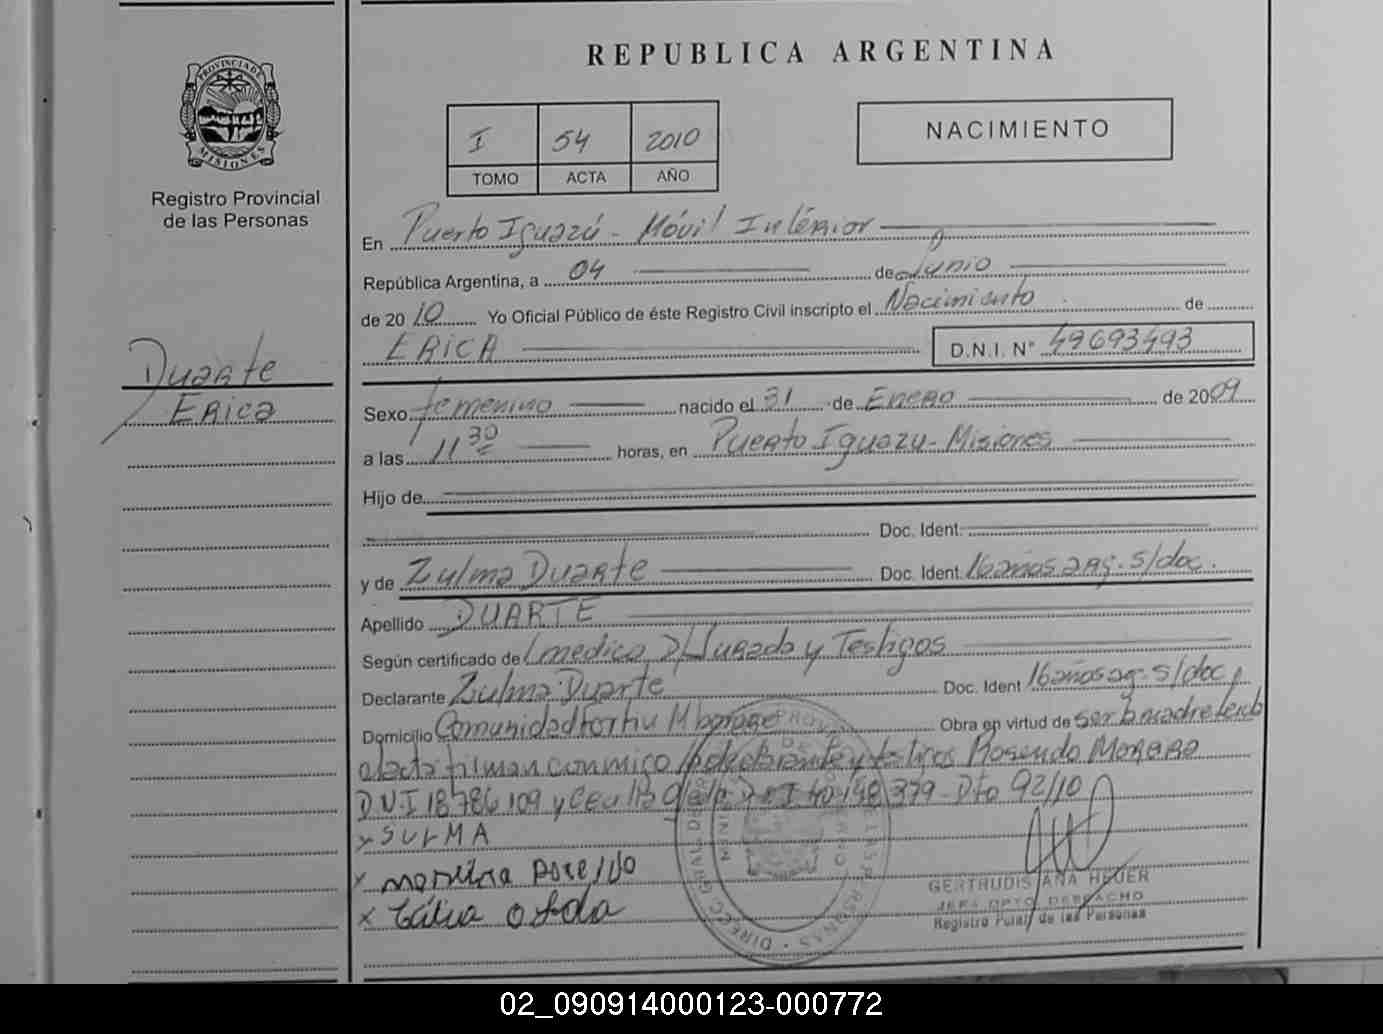 REPUBLICA ARGENTINA
PROVINCIA DE
MISIONES
Registro Provincial
de las Personas
I 54 2010
TOMO ACTA AÑO
NACIMIENTO
En Puerto Iguazú - Móvil Interior
República Argentina, a 04 de Junio
de 2010 Yo Oficial Público de éste Registro Civil inscripto el Nacimiento de
ERICA D.N.I. N° 49693493
Duarte
Erica
Sexo femenino nacido el 31 de Enero de 2009
a las 11 30 horas, en Puerto Iguazu - Misiones
Hijo de
Doc. Ident.
y de Zulma Duarte Doc. Ident. 16 años arg. s/doc.
Apellido DUARTE
Según certificado de medico Jurada y Testigos
Declarante Zulma Duarte Doc. Ident 16 años arg. s/doc
Domicilio Comunidad Fortin Mbororé Obra en virtud de ser la madre
acta firman conmigo declarante y testigos Rosendo
D.N.I 18786109 y 40148379 - Dto 92/10
x SULMA
x
x
GERTRUDIS ANA HEUER
JEFA DPTO DESPACHO
Registro de las Personas
02_090914000123-000772